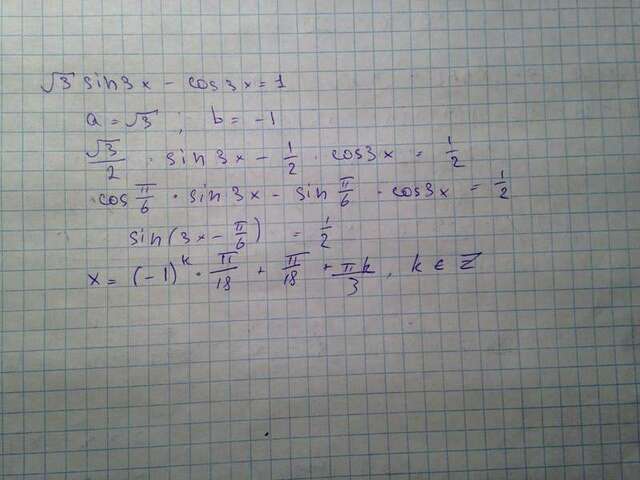 √3 sin3x − cos3x = 1
a = √3 ; b = −1
√3/2 · sin3x − 1/2 · cos3x = 1/2
· cos π/6 · sin3x − sin π/6 · cos3x = 1/2
sin(3x − π/6) = 1/2
x = (−1)^k · π/18 + π/18 + πk/3, k ∈ Z